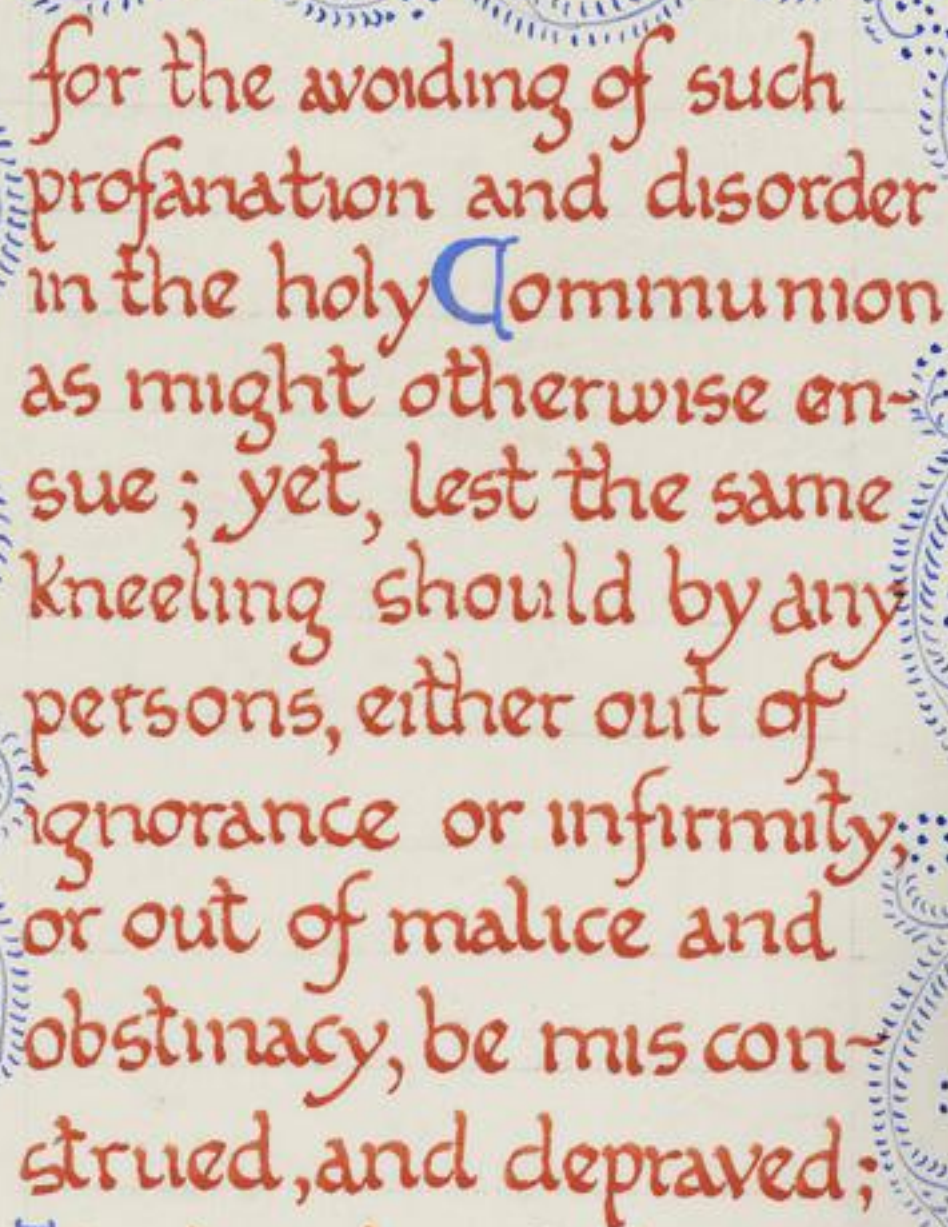 for the avoiding of such
profanation and disorder
in the holy Communion
as might otherwise en-
sue; yet, lest the same
kneeling should by any
persons, either out of
ignorance or infirmity,
or out of malice and
obstinacy, be miscon-
strued, and depraved;